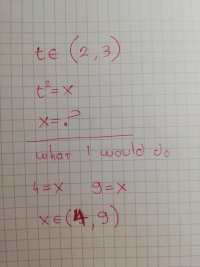 t∈ (2,3)
t²=x
x=?
what I would do
4=x 9=x
x∈(4,9)